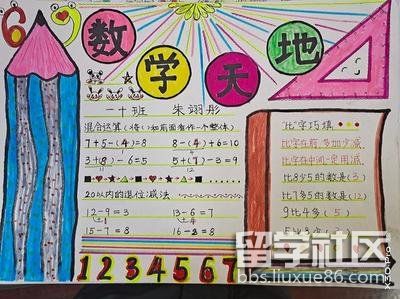 69
数学天地
一十班 朱翊彤
混合运算(将( )和前面看作一个整体)
7+5-(4)=8 8-(4)+6=10
12
3+(8)-6=5 5+(7)-3=9
11 12
20以内的退位减法
12-9=3 13-6=7
+1 +4
15-7=8 16-8=8
1 2 3 4 5 6 7
比字巧填
比字在前,多加少减
比字在中间一定用减
比8少5的数是(3)
比7多5的数是(12)
9比4多(5)
留学社区
bbs.liuxue86.com